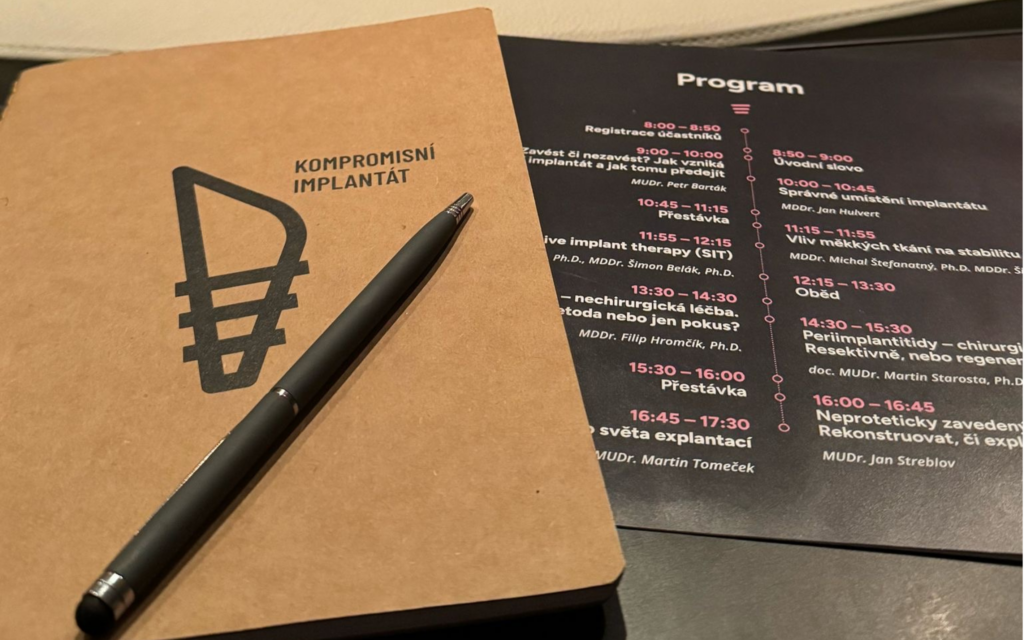 KOMPROMISNÍ
IMPLANTÁT
Program
8:00 – 8:50
Registrace účastníků
8:50 – 9:00
Úvodní slovo
9:00 – 10:00
Zavést či nezavést? Jak vzniká
implantát a jak tomu předejít
MUDr. Petr Barták
10:00 – 10:45
Správné umístění implantátu
MDDr. Jan Hulvert
10:45 – 11:15
Přestávka
11:15 – 11:55
Vliv měkkých tkání na stabilitu
MDDr. Michal Štefanatný, Ph.D. MDDr.
11:55 – 12:15
implant therapy (SIT)
Ph.D., MDDr. Šimon Belák, Ph.D.
12:15 – 13:30
Oběd
13:30 – 14:30
– nechirurgická léčba.
nebo jen pokus?
MDDr. Filip Hromčík, Ph.D.
14:30 – 15:30
Periimplantitidy –
Resektivně, nebo
doc. MUDr. Martin Starosta,
15:30 – 16:00
Přestávka
16:00 – 16:45
Neproteticky
Rekonstruovat, či
MUDr. Jan Streblov
16:45 – 17:30
světa explantací
MUDr. Martin Tomeček